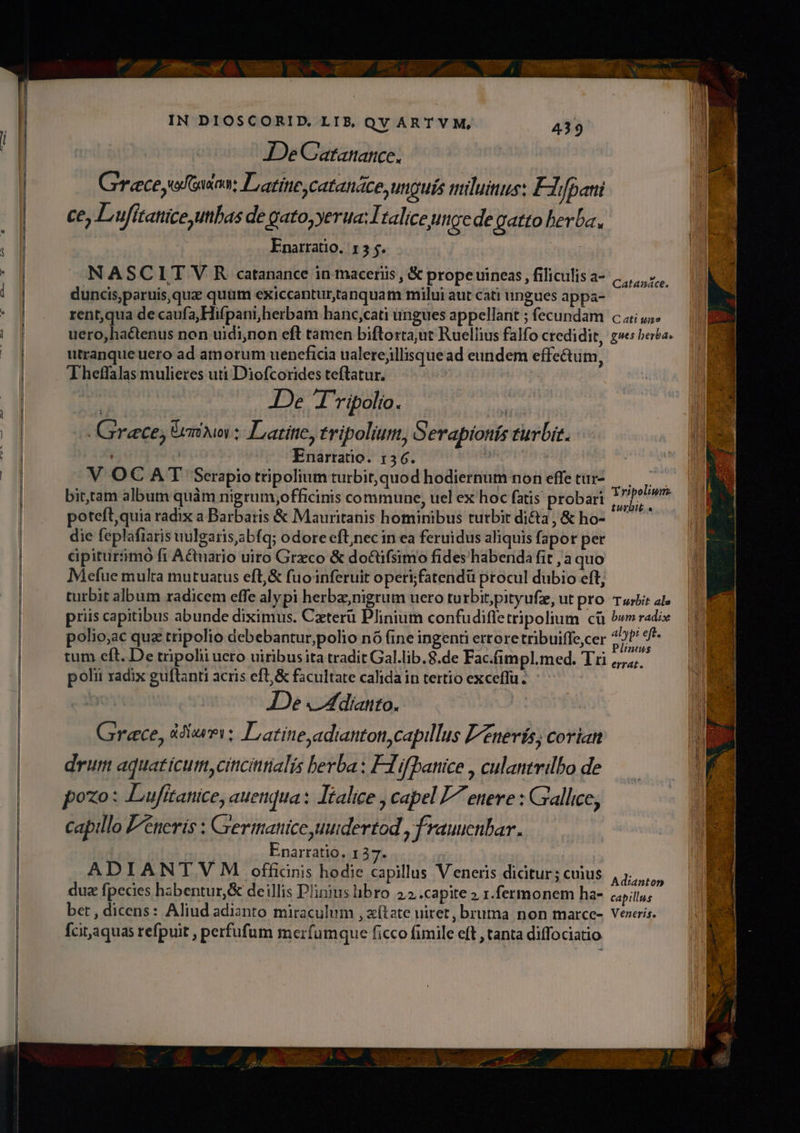 IN DIOSCORID. LIB. QVARTVM. 439
De Catanance.
Græce, Latine,catanãce,unguis miluinus: Hiſpani
ce, Luſitanice,unhas de gato,yerua: Italice,unge de gatto herba.
Enarratio. 135.
NASCITVR catanance in maceriis, & prope uineas, filiculis a-
duncis,paruis,quæ quum exiccantur,tanquam milui aut cati ungues appa-
rent,qua de cauſa,Hiſpani,herbam hanc,cati ungues appellant; ſecundam
uero,hactenus non uidi,non eſt tamen biſtorta,ut Ruellius falſo credidit,
utranque uero ad amorum ueneficia ualere,illisque ad eundem effectum,
Theſſalas mulieres uti Dioſcorides teſtatur.
Catanãce.
Cati un-
gues herba.
De Tripolio.
Græce, Latine, tripolium, Serapionis turbit.
Enarratio. 136.
VOCAT Serapio tripolium turbit,quod hodiernum non eſſe tur-
bit,tam album quàm nigrum,officinis commune, uel ex hoc ſatis probari
poteſt,quia radix a Barbaris & Mauritanis hominibus turbit dicta, & ho-
die ſeplaſiariis uulgaris,abſq; odore eſt,nec in ea feruidus aliquis ſapor per
cipitur:imó ſi Actuario uiro Græco & doctiſsimo fides habenda ſit, a quo
Meſue multa mutuatus eſt,& ſuo inſeruit operi;fatendũ procul dubio eſt,
turbit album radicem eſſe alypi herbæ,nigrum uero turbit,pityuſæ, ut pro
priis capitibus abunde diximus. Cæterũ Plinium confudiſſe tripolium cũ
polio,ac quæ tripolio debebantur,polio nõ ſine ingenti errore tribuiſſe,cer
tum eſt. De tripolii uero uiribus ita tradit Gal.lib.8.de Fac.ſimpl.med. Tri
polii radix guſtanti acris eſt,& facultate calida in tertio exceſſu.
Tripolium
turbit.
Turbit al-
bum radix
alypi eſt.
Plinius
errat.
De Adianto.
Græce, Latine,adianton,capillus Veneris, corian
drum aquaticum,cincinnalis herba: Hiſpanice, culantrilho de
pozo: Luſitanice, auenqua: Italice, capel Venere: Gallice,
capillo Veneris: Germanice,uuidertod, frauuenhar.
Enarratio. 137.
ADIANTVM officinis hodie capillus Veneris dicitur; cuius
duæ ſpecies habentur,& de illis Plinius libro 22.capite 21.ſermonem ha-
bet, dicens: Aliud adianto miraculum, æſtate uiret, bruma non marce-
ſcit,aquas reſpuit, perfuſum merſumque ſicco ſimile eſt, tanta diſſociatio
Adianton
capillus
Veneris.